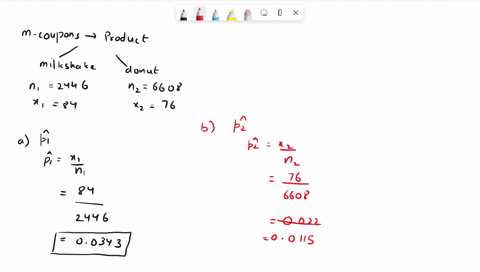 m-coupons → Product
milkshake
n₁ = 2446
x₁ = 84
donut
n₂ = 6608
x₂ = 76
a) p̂₁
p̂₁ = x₁/n₁
= 84/2446
= 0.0343
b) p̂₂
p̂₂ = x₂/n₂
= 76/6608
= 0.022
= 0.0115